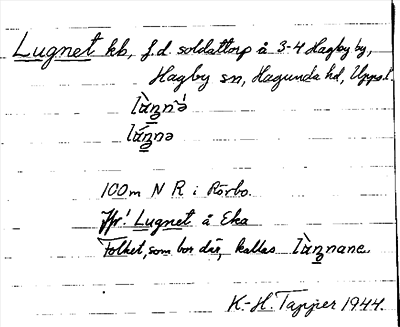 Lugnet kb, f.d. soldattorp å 3-4 Hagby by,
Hagby sn, Hagunda hd, Uppsl.
100m N R i Rörbo.
Jfr! Lugnet å Eka
Folket, som bor där, kallas
K.-H. Tapper 1944.